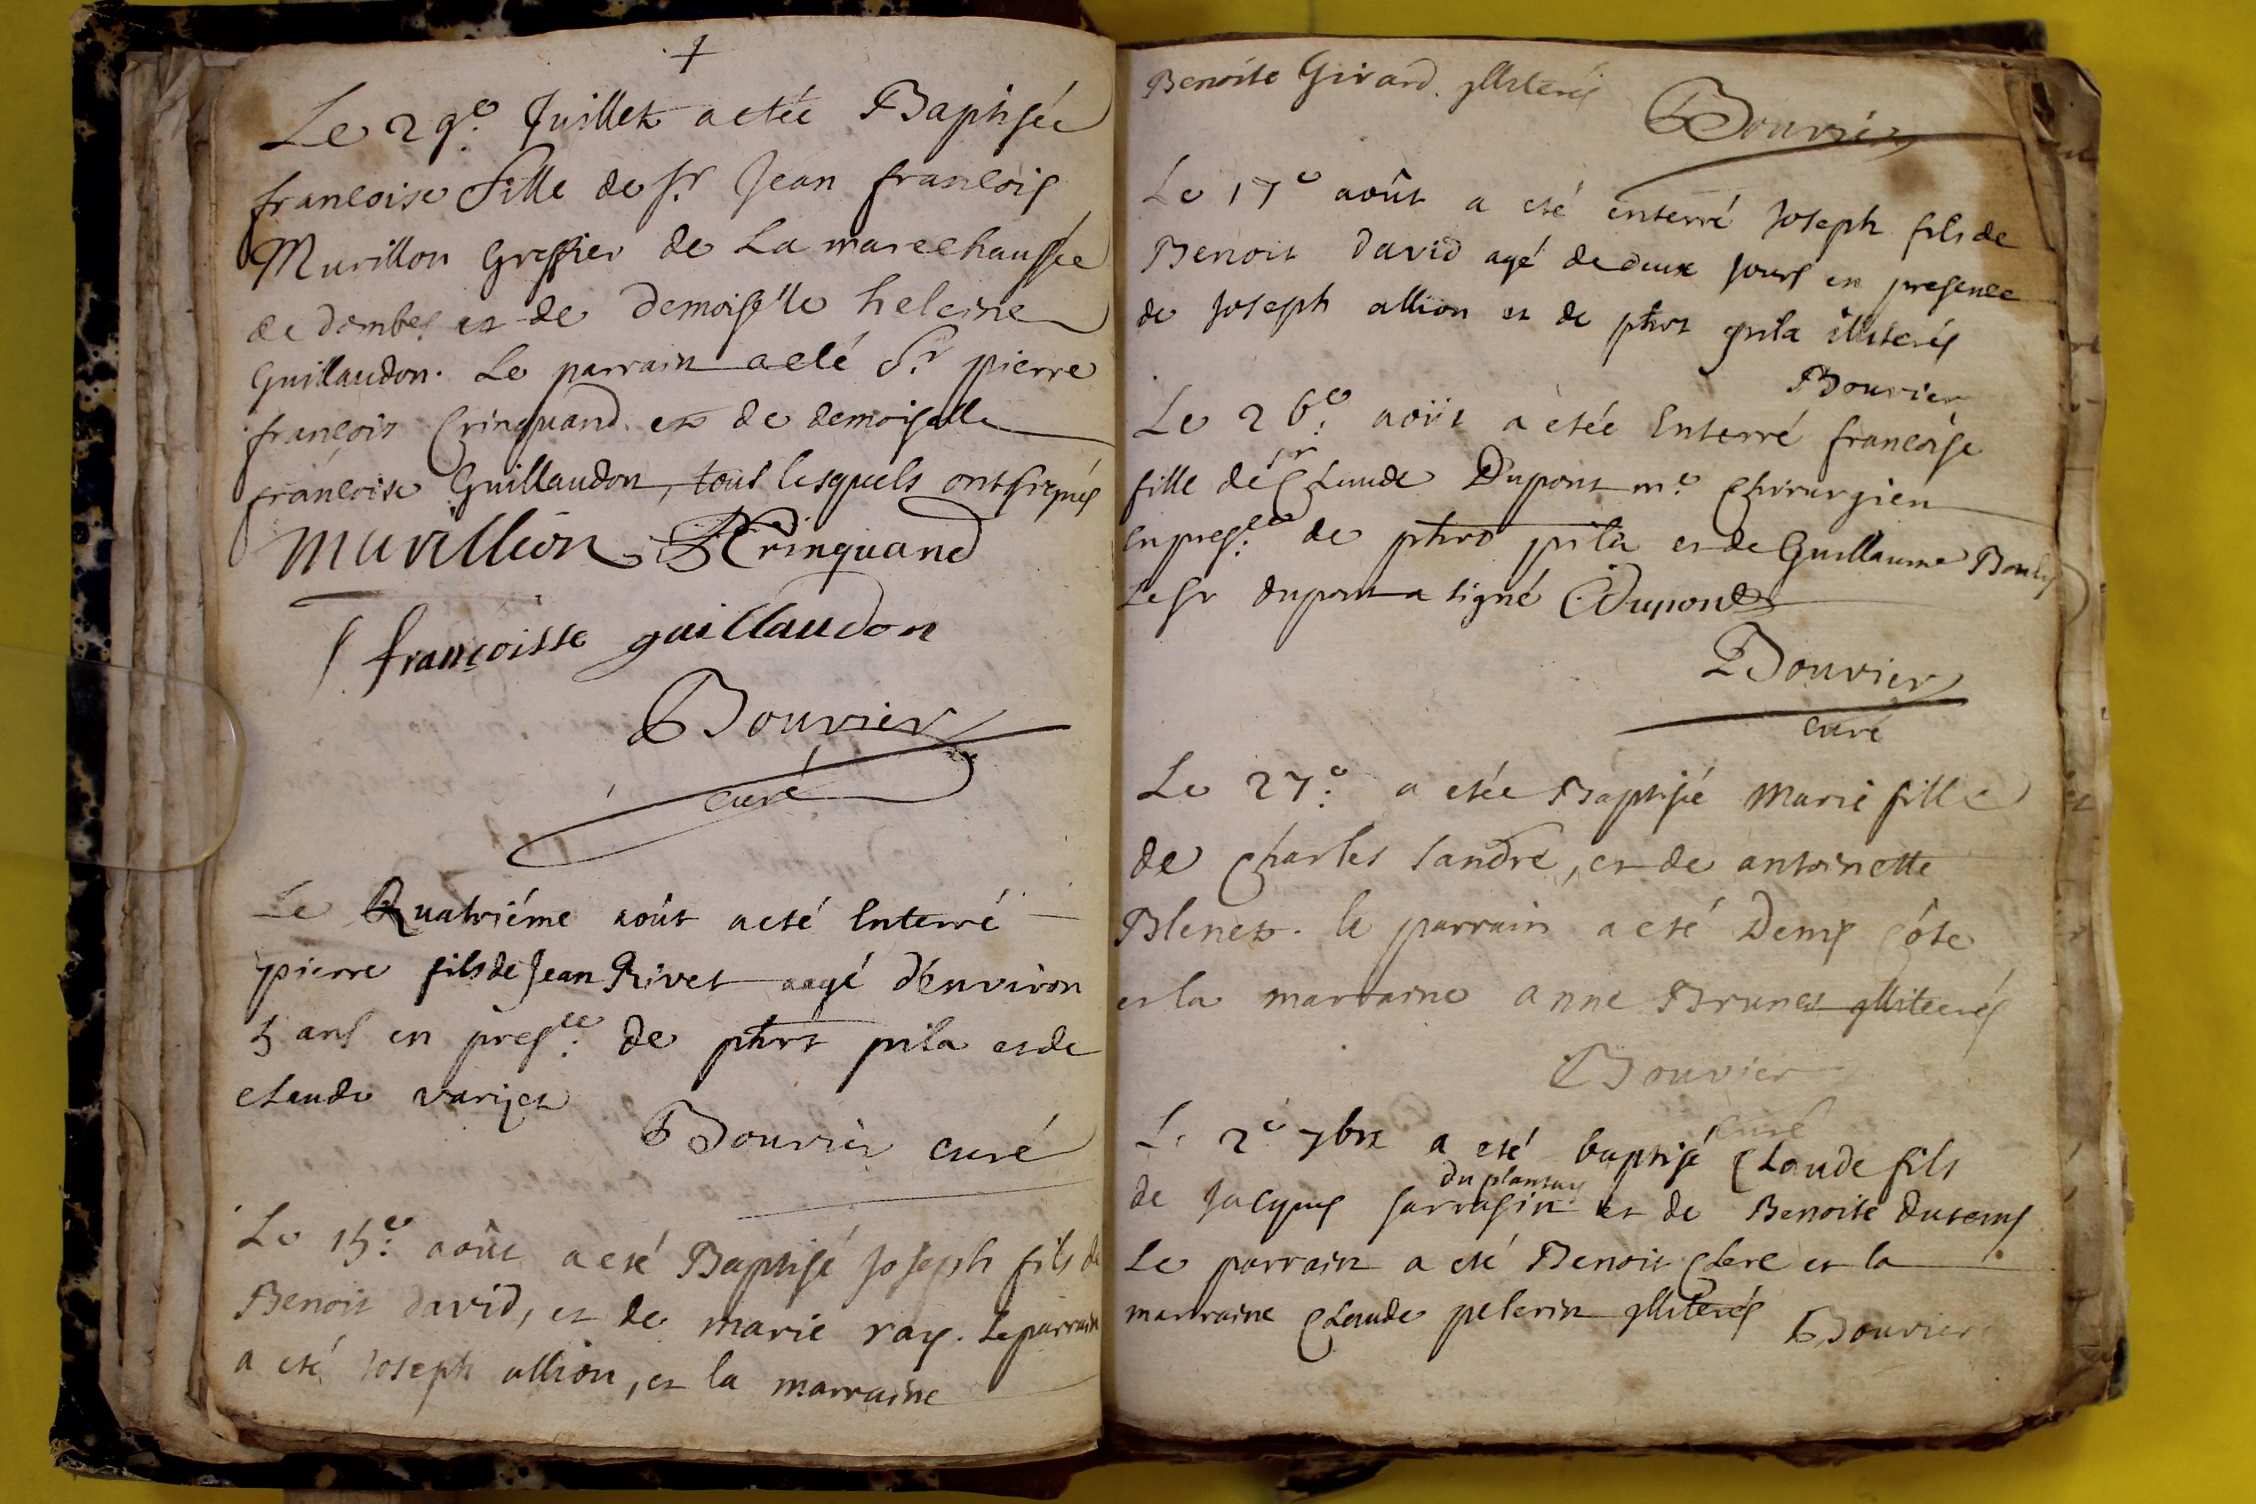 Le 29e Juillet a etée Baptisée
francoise fille de Sr Jean francois
Murillon Greffier de La marechaussée
de dombes et de Demoiselle heleine
Guillaudon. Le parrain a eté Sr pierre
françois Crinquand et de demoiselle
françoise Guillaudon, tous lesquels ont signés
murillion Krinquand
françoisse guillaudon
Bouvier
curé
Le Quatriéme août a eté Enterré
pierre fils de Jean Rivet aagé d'environ
5 ans en presce de phrt pila et de
claude
Bouvier curé
Le 15e août a eté Baptisé Joseph fils de
Benoit david, et de marie ray. Le parrain
a eté Joseph allion, et la marraine
Benoite Girard. jlliterés
Bouvier
Le 17e août a eté enterré Joseph fils de
Benoit David agé de deux jours en presence
de Joseph allion et de phrt pila illiterés
Bouvier
Le 26e août a etée Enterré francoise
fille de Sr Claude Dupont me Chirurgien
En presce de phrt pila et de Guillaume
Le Sr dupont a signé CDupont
Bouvier
curé
Le 27e a etée Baptisée Marie fille
de Charles Sandre, et de antoinette
Blenet. le parrain a eté Denis Côte
et la marraine anne Brunet jlliterés
Bouvier
curé
Le 2e 7bre a eté baptisé Claude fils
du plantay
de Jacques Sarrasin et de Benoite dutems
Le parrain a eté Benoit Clere et la
marraine Claude pelerin jlliterés Bouvier